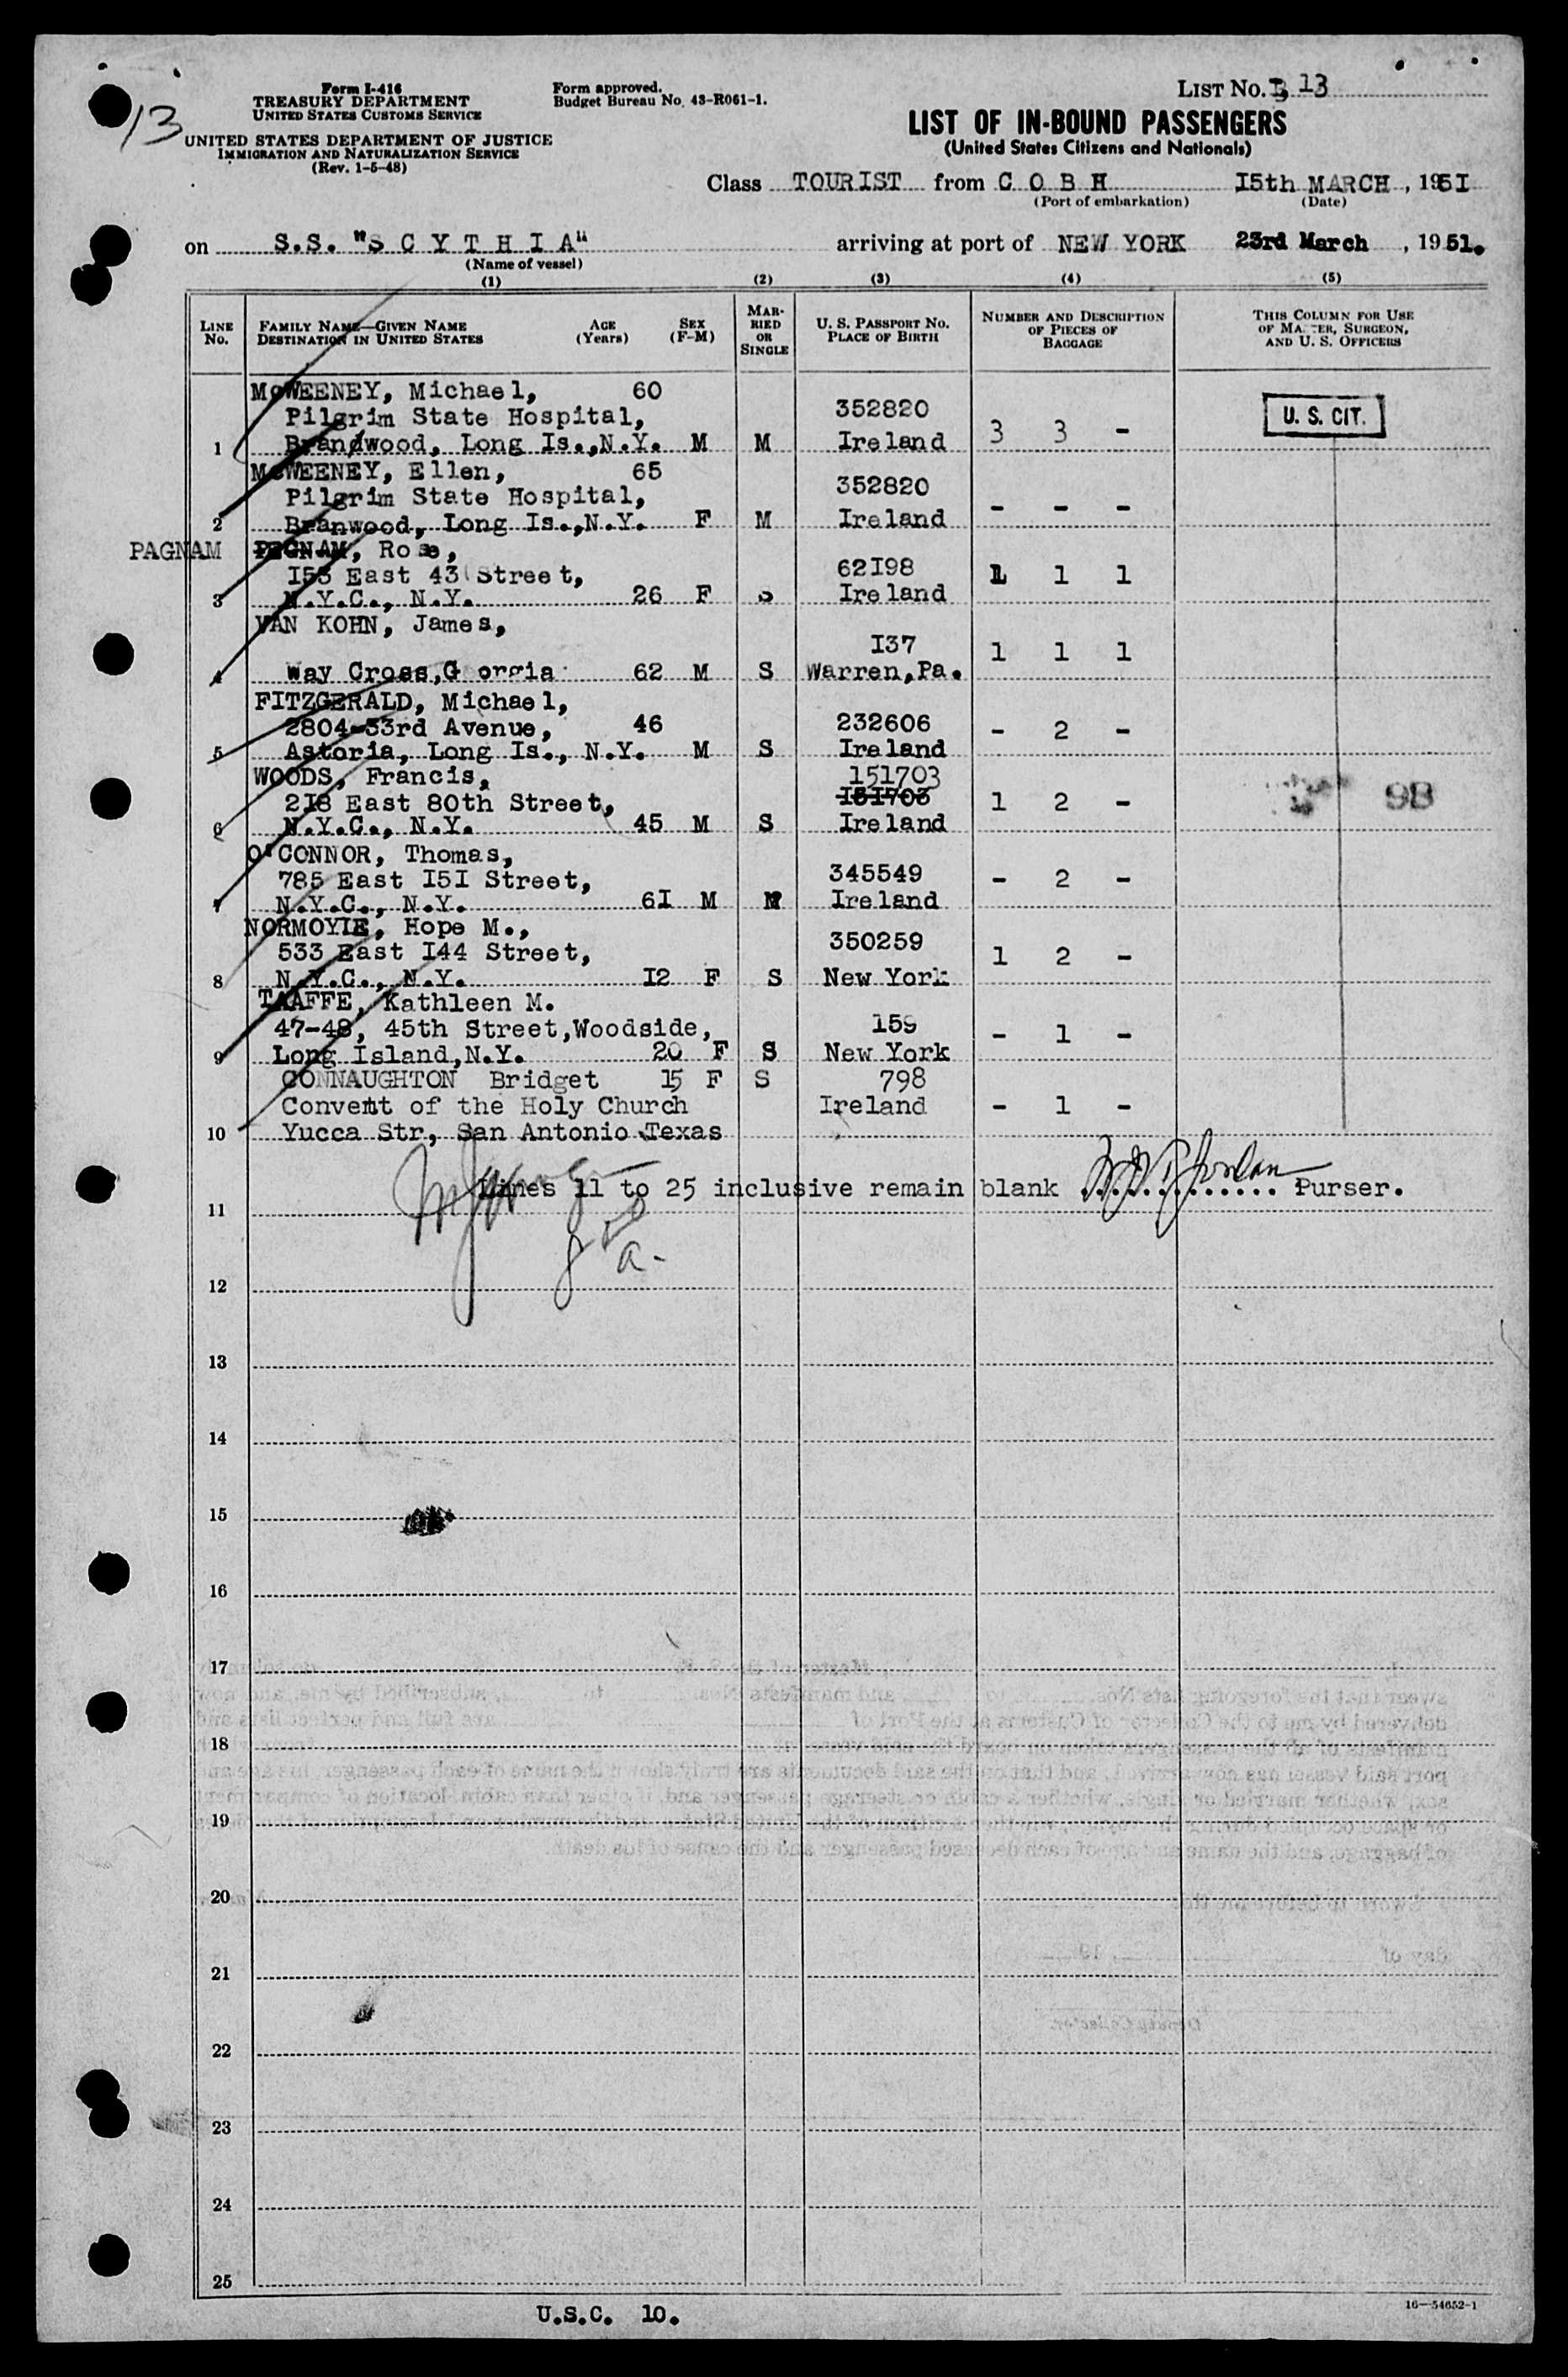 13
Form I-416
TREASURY DEPARTMENT
UNITED STATES CUSTOMS SERVICE
UNITED STATES DEPARTMENT OF JUSTICE
IMMIGRATION AND NATURALIZATION SERVICE
(Rev. 1-5-48)
Form approved.
Budget Bureau No. 43-R061-1.
LIST No. 13
LIST OF IN-BOUND PASSENGERS
(United States Citizens and Nationals)
Class TOURIST from C O B H 15th MARCH, 1951
(Port of embarkation) (Date)
on S.S. "S C Y T H I A" arriving at port of NEW YORK 23rd March, 1951.
(Name of vessel)
(1) (2) (3) (4) (5)
LINE No. FAMILY NAME—GIVEN NAME DESTINATION IN UNITED STATES AGE (Years) SEX (F-M) MARRIED OR SINGLE U. S. PASSPORT No. PLACE OF BIRTH NUMBER AND DESCRIPTION OF PIECES OF BAGGAGE THIS COLUMN FOR USE OF MASTER, SURGEON, AND U. S. OFFICERS
McWEENEY, Michael, 60
Pilgrim State Hospital, 352820 U. S. CIT.
1 Brandwood, Long Is.,N.Y. M M Ireland 3 3 -
McWEENEY, Ellen, 65
Pilgrim State Hospital, 352820
2 Branwood, Long Is.,N.Y. F M Ireland - - -
PAGNAM PEGNAM, Rose,
153 East 43 Street, 62I98 1 1 1
3 N.Y.C., N.Y. 26 F S Ireland
VAN KOHN, James,
I37 1 1 1
4 Way Cross,G orgia 62 M S Warren,Pa.
FITZGERALD, Michael,
2804-33rd Avenue, 46 232606 - 2 -
5 Astoria, Long Is., N.Y. M S Ireland
WOODS, Francis, 151703
218 East 80th Street, I5I703 1 2 - 9B
6 N.Y.C., N.Y. 45 M S Ireland
O'CONNOR, Thomas,
785 East I5I Street, 345549 - 2 -
7 N.Y.C., N.Y. 6I M M Ireland
NORMOYLE, Hope M.,
533 East I44 Street, 350259 1 2 -
8 N.Y.C., N.Y. I2 F S New York
TAAFFE, Kathleen M.
47-48, 45th Street,Woodside, 159 - 1 -
9 Long Island,N.Y. 20 F S New York
CONNAUGHTON Bridget 15 F S 798
Convent of the Holy Church Ireland - 1 -
10 Yucca Str, San Antonio Texas
Lines 11 to 25 inclusive remain blank Jordan Purser.
11
12
13
14
15
16
17
18
19
20
21
22
23
24
25
U.S.C. 10.
16—54652-1